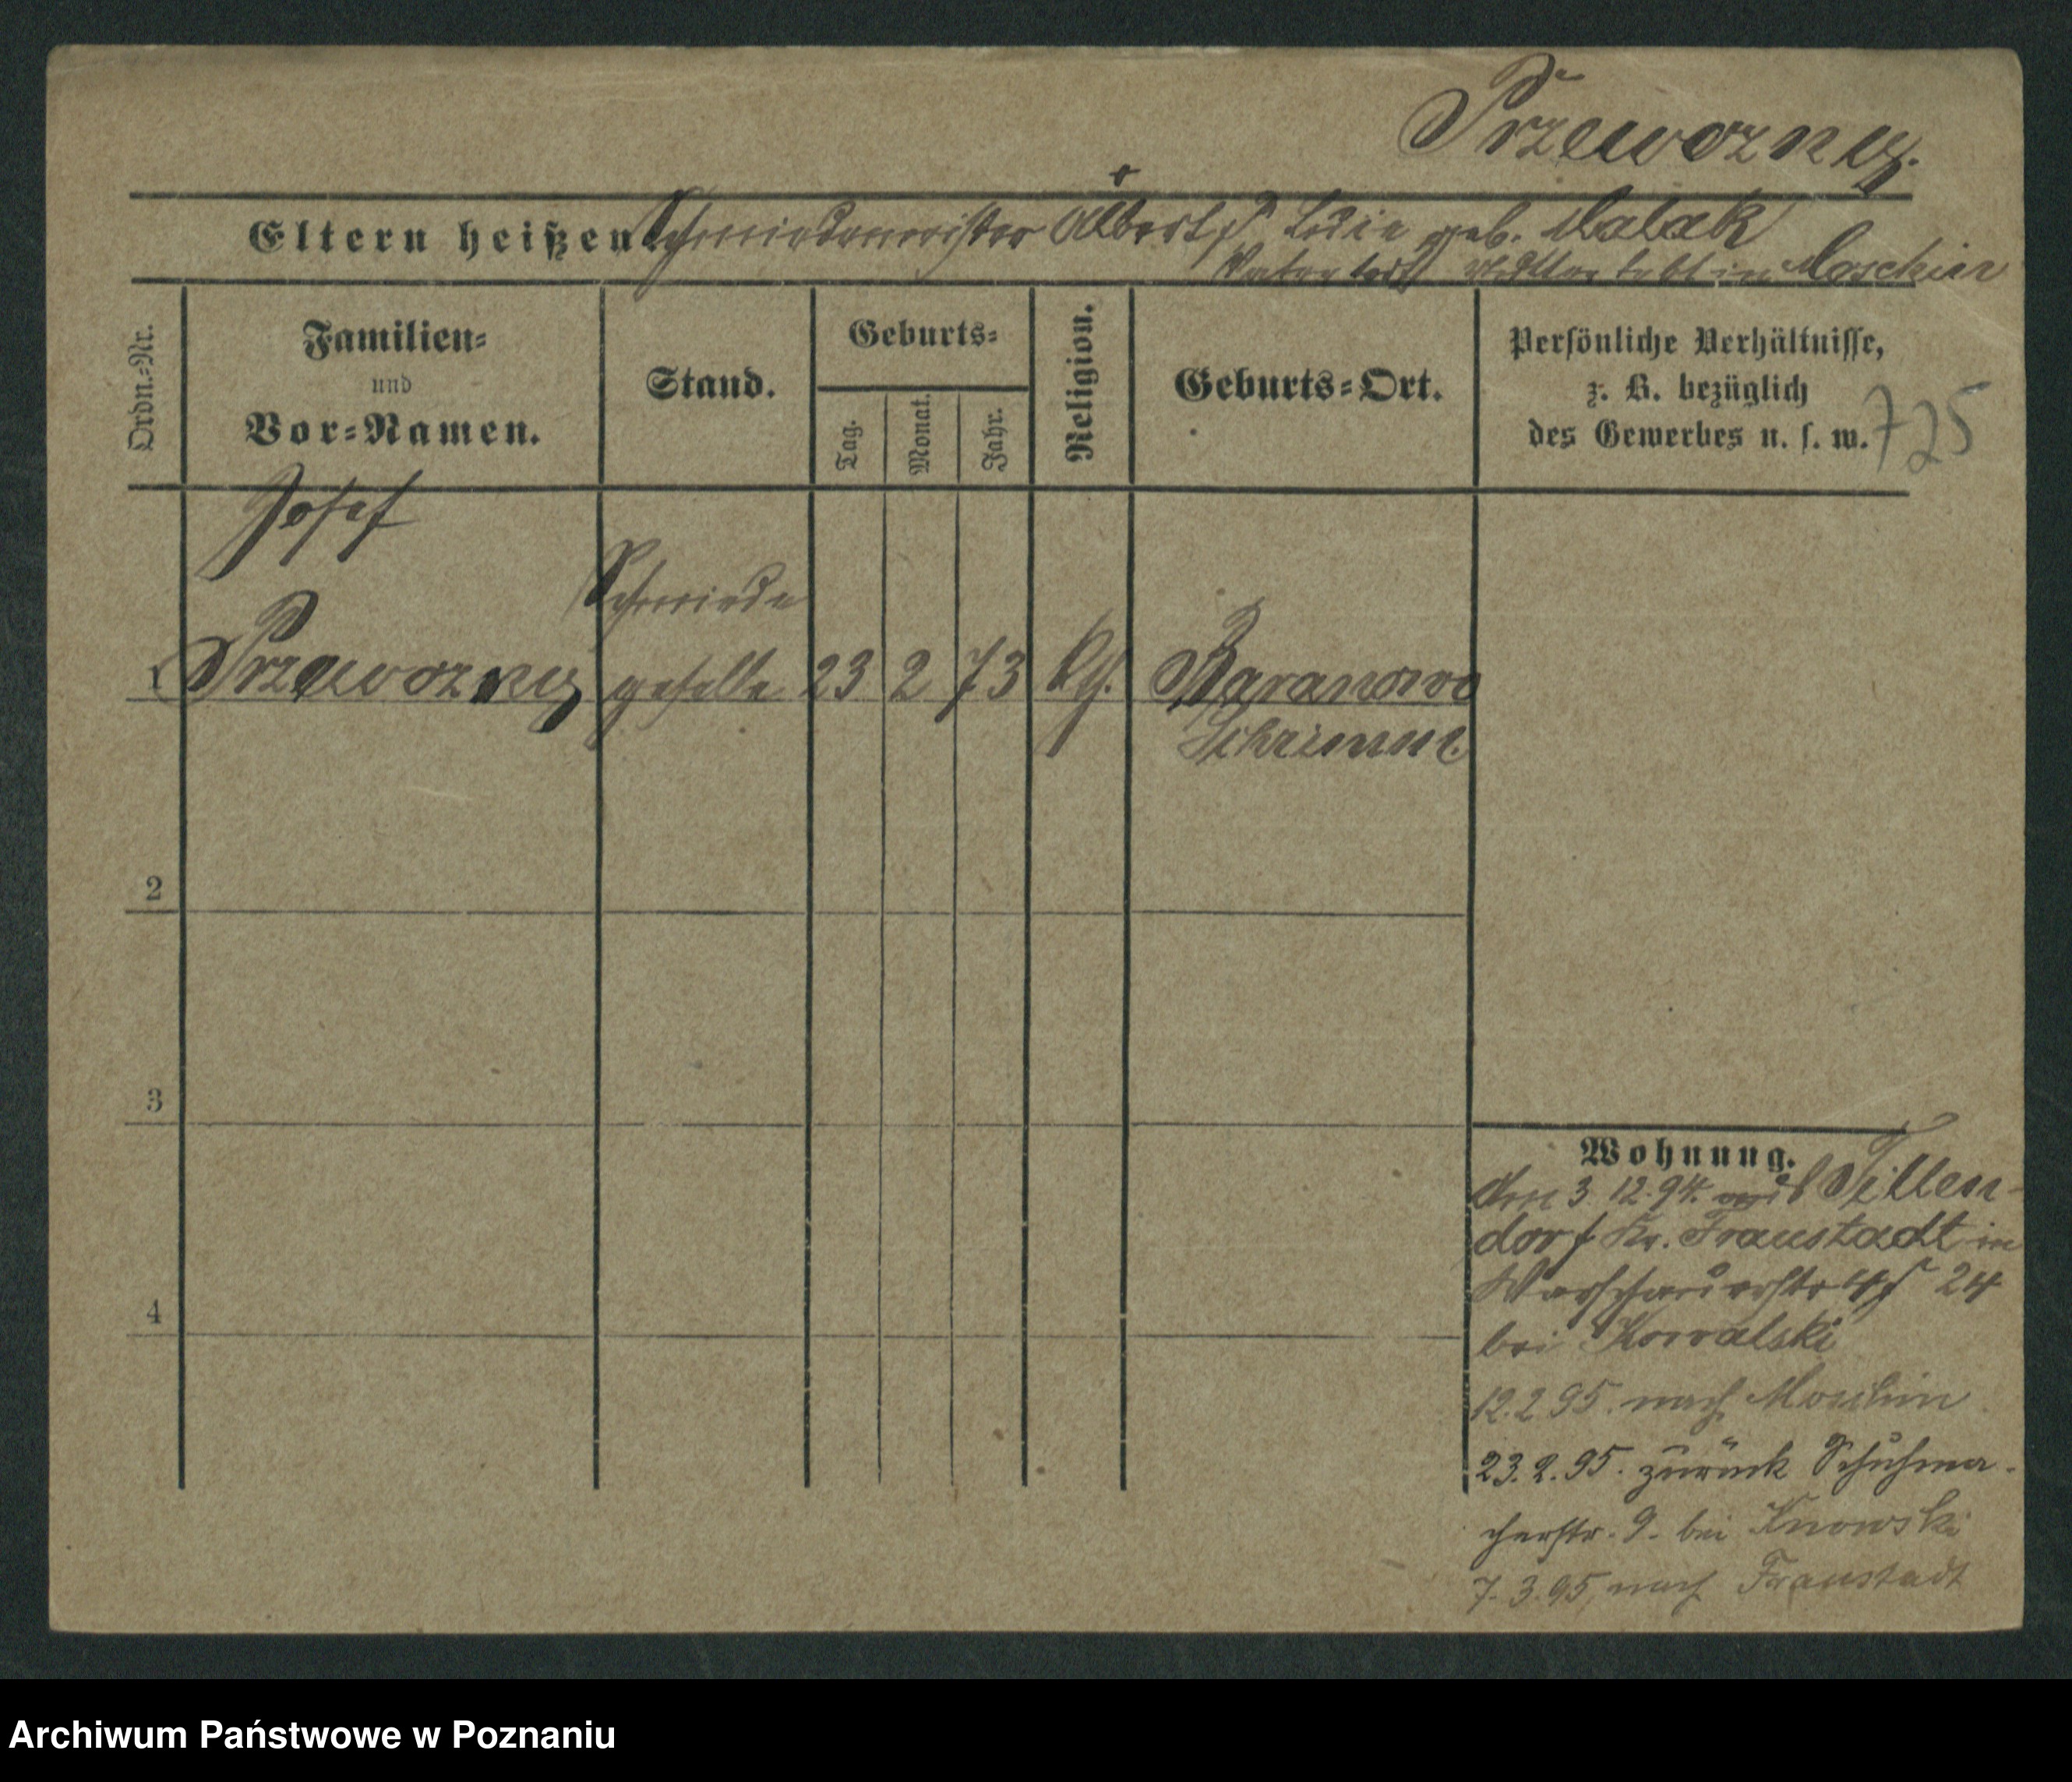 Przewozny.
Eltern heißen Schmiedemeister Albert geb. Malak
Vater todt Mutter lebt in Moschin
Ordn.-Nr.
Familien-
und
Vor-Namen.
Stand.
Geburts-
Tag.
Monat.
Jahr.
Religion.
Geburts-Ort.
Persönliche Verhältnisse,
z. B. bezüglich
des Gewerbes u. s. w.
725
Josef
Schmiede
1 Przewozny geselle 23 2 73 kth. Baranowo
Schrimm.
2
3
4
Wohnung.
den 3 12. 94. aus Tillen-
dorf Kr. Fraustadt in
Warschauerstr 24
bei Kowalski
12.2 95. nach Moschin
23.2.95. zurück Schuhma-
cherstr. 9. bei Knowski
7.3.95, nach Fraustadt
Archiwum Państwowe w Poznaniu